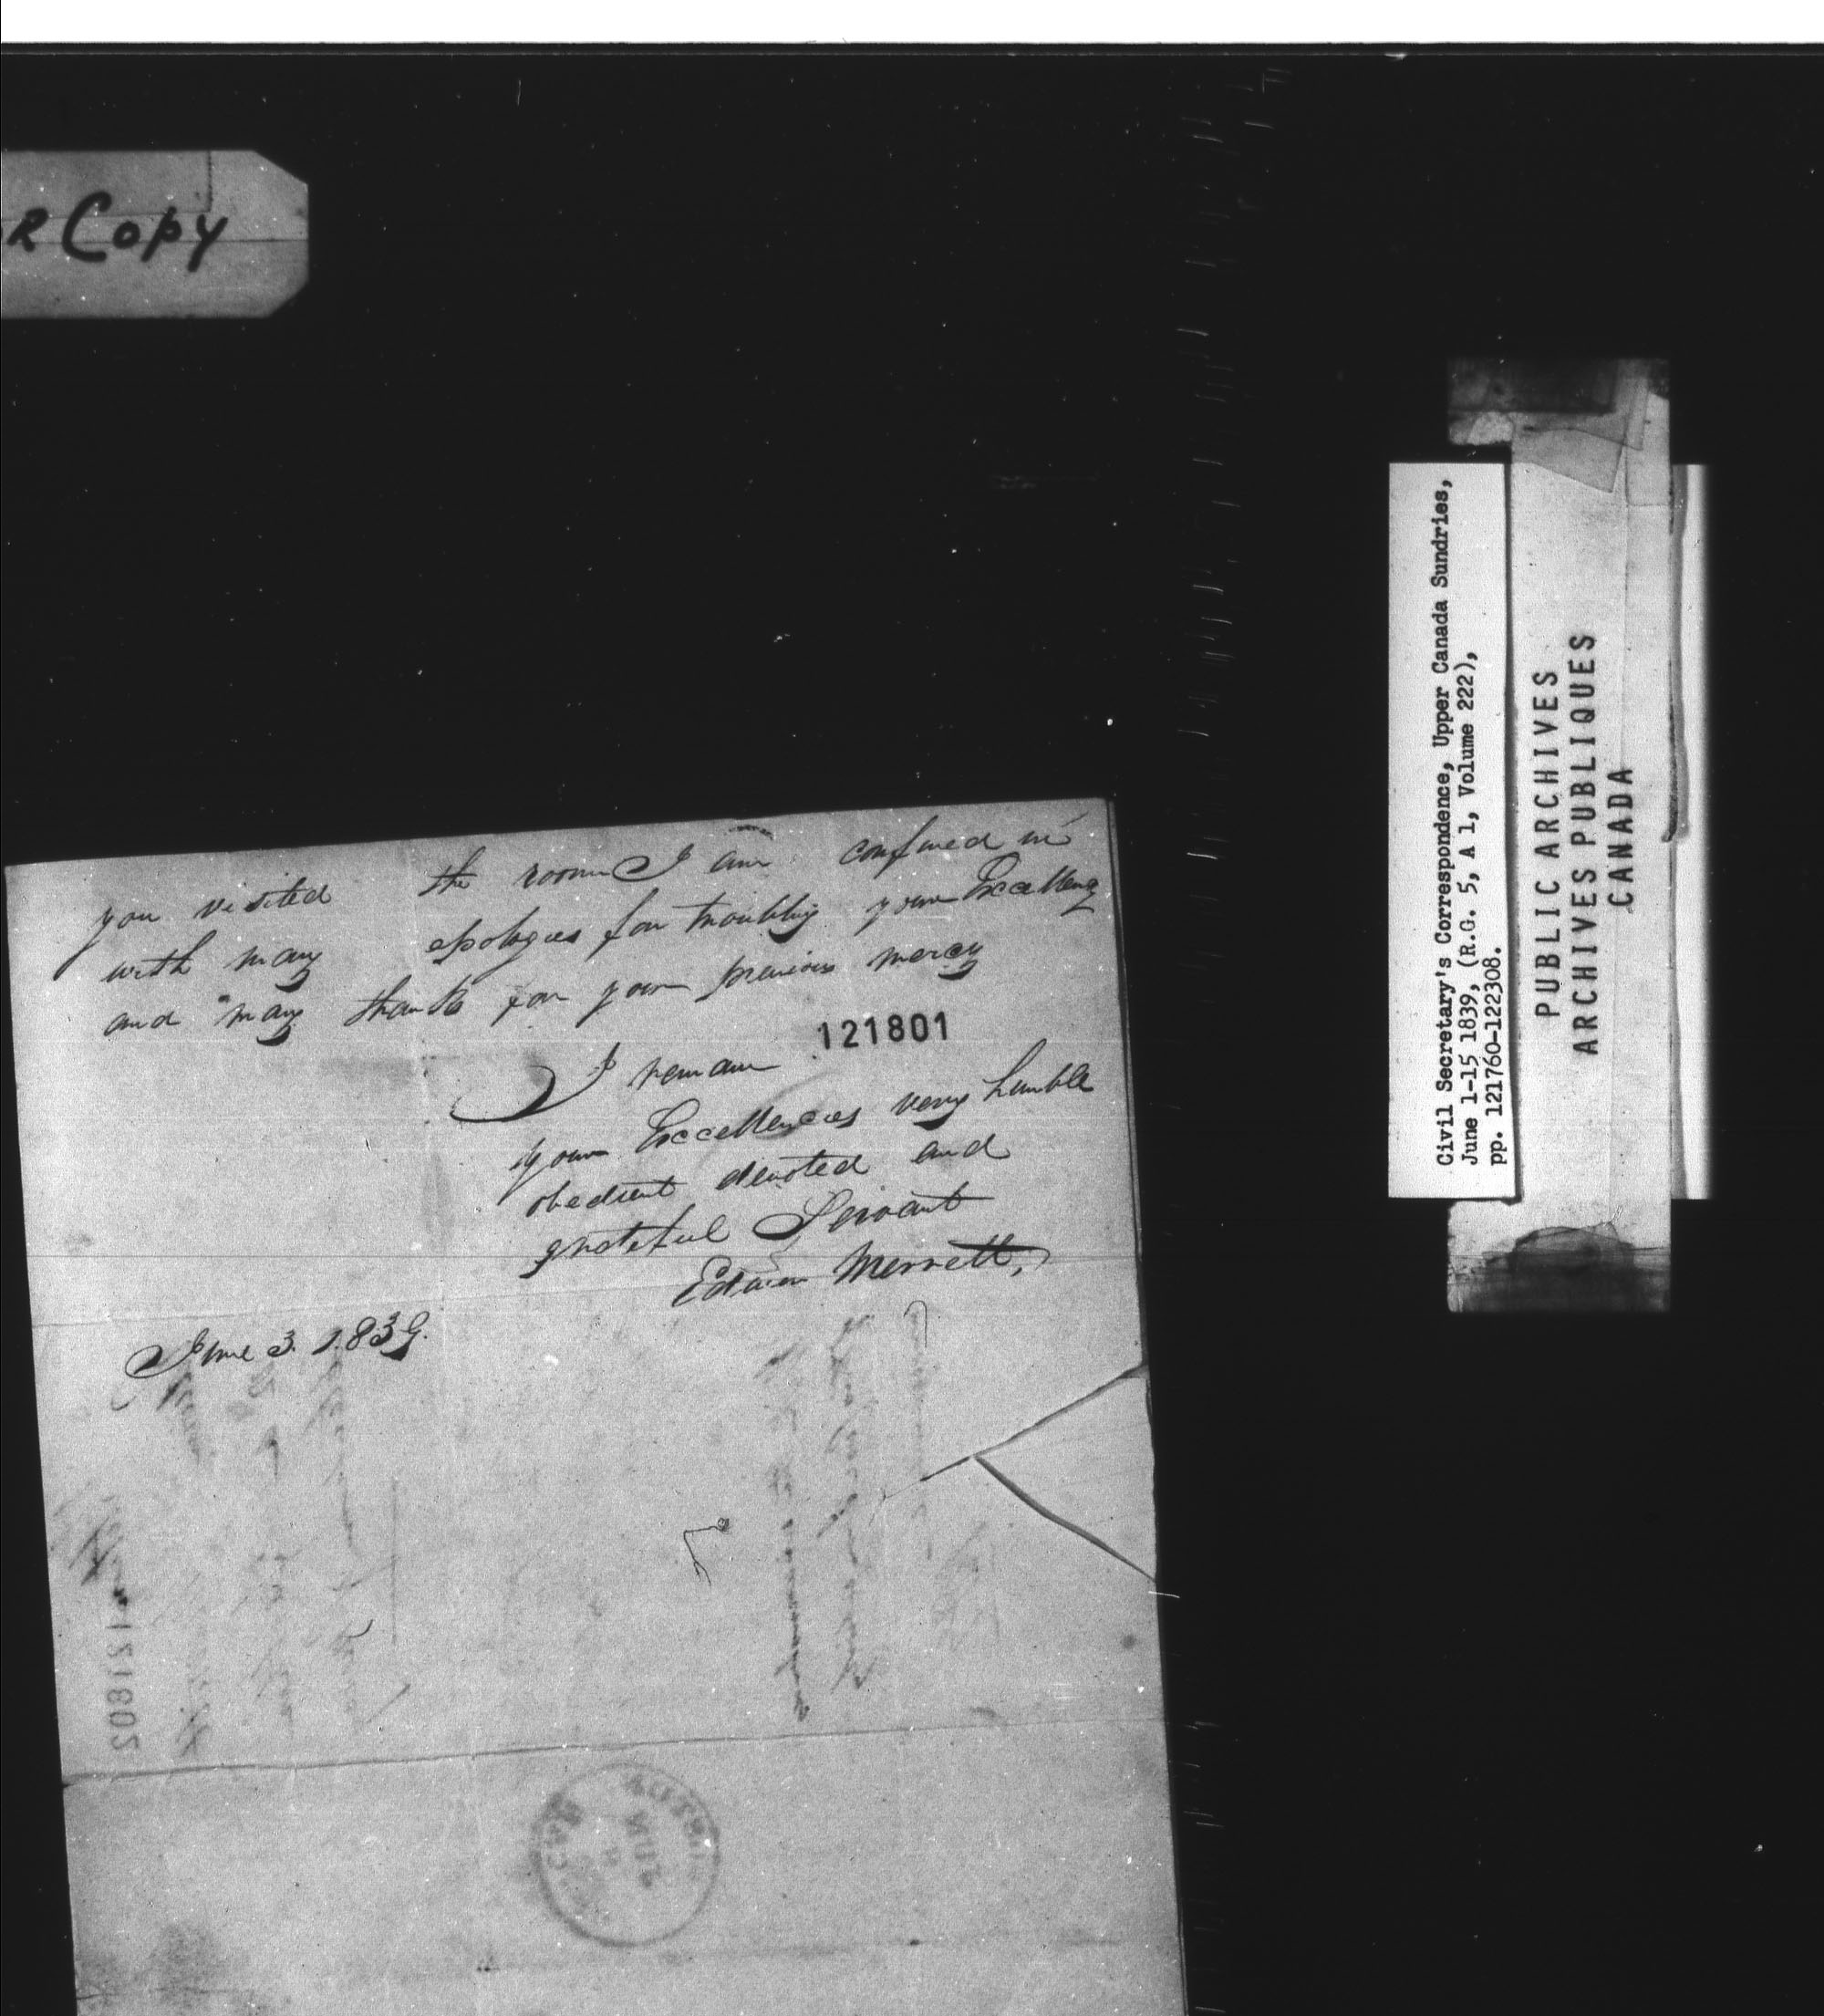 R Copy
you visited the room I am confined in
with many apologies for troubling your Excellency
and many thanks for your previous mercy
121801
I remain
your Excellencies very humble
obedient devoted and
grateful Servant
Edwin Merrett,
June 3. 1839.
121802
Civil Secretary's Correspondence, Upper Canada Sundries,
June 1-15 1839, (R.G. 5, A 1, Volume 222),
pp. 121760-122308.
PUBLIC ARCHIVES
ARCHIVES PUBLIQUES
CANADA